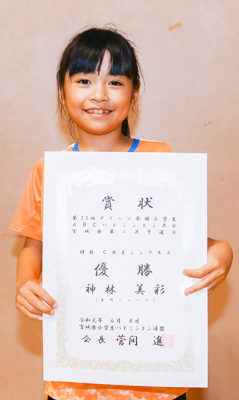 賞状
第20回ダイハツ全国小学生
ABCバドミントン大会
宮城県第二次予選会
種目 C女子シングルス
優勝
神林 美彩
令和元年 6月 8日
宮城県小学生バドミントン連盟
会長 菅岡 進